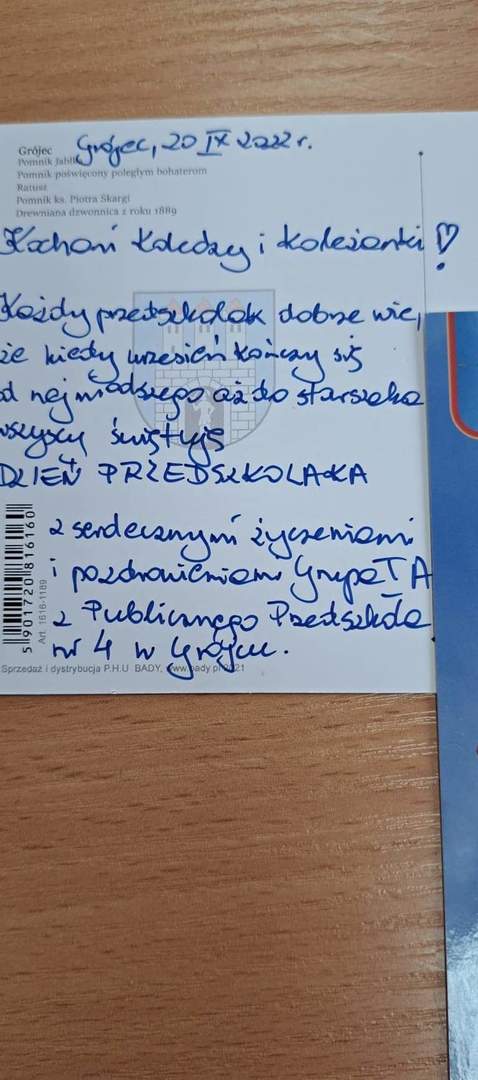 Grójec
Grójec, 20 IX 2022 r.
Pomnik Jabł
Pomnik poświęcony poległym bohaterom
Ratusz
Pomnik ks. Piotra Skargi
Drewniana dzwonnica z roku 1889
Kochani koledzy i koleżanki!
Każdy przedszkolak dobrze wie,
że kiedy wrzesień kończy się
od najmłodszego aż do starszaka
wszyscy świętują
DZIEŃ PRZEDSZKOLAKA
z serdecznymi życzeniami
i pozdrowieniami Grupa I A
z Publicznego Przedszkola
nr 4 w Grójcu.
5 901720 816160
Art. 1616-1189
Sprzedaż i dystrybucja P.H.U BADY, www.bady.pl 2021